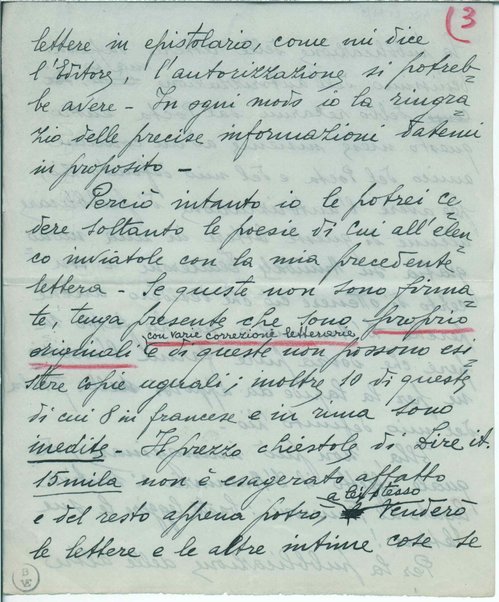 (3
lettere in epistolario, come mi dice
l'Editore, l'autorizzazione si potreb=
be avere - In ogni modo io la ringra=
zio delle precise informazioni datemi
in proposito -
Perciò intanto io le potrei ce=
dere soltanto le poesie di cui all'elen=
co inviatole con la mia precedente
lettera - Se queste non sono firma=
te, tenga presente che sono proprio
con varie correzione letterarie
originali e di queste non possono esi=
stere copie uguali; inoltre 10 di queste
di cui 8 in francese e in rima sono
inedite - Il prezzo chiestole di Lire it.
15mila non è esagerato affatto
a lei stesso
e del resto appena potrò, venderò
le lettere e le altre intime cose se
B
VE